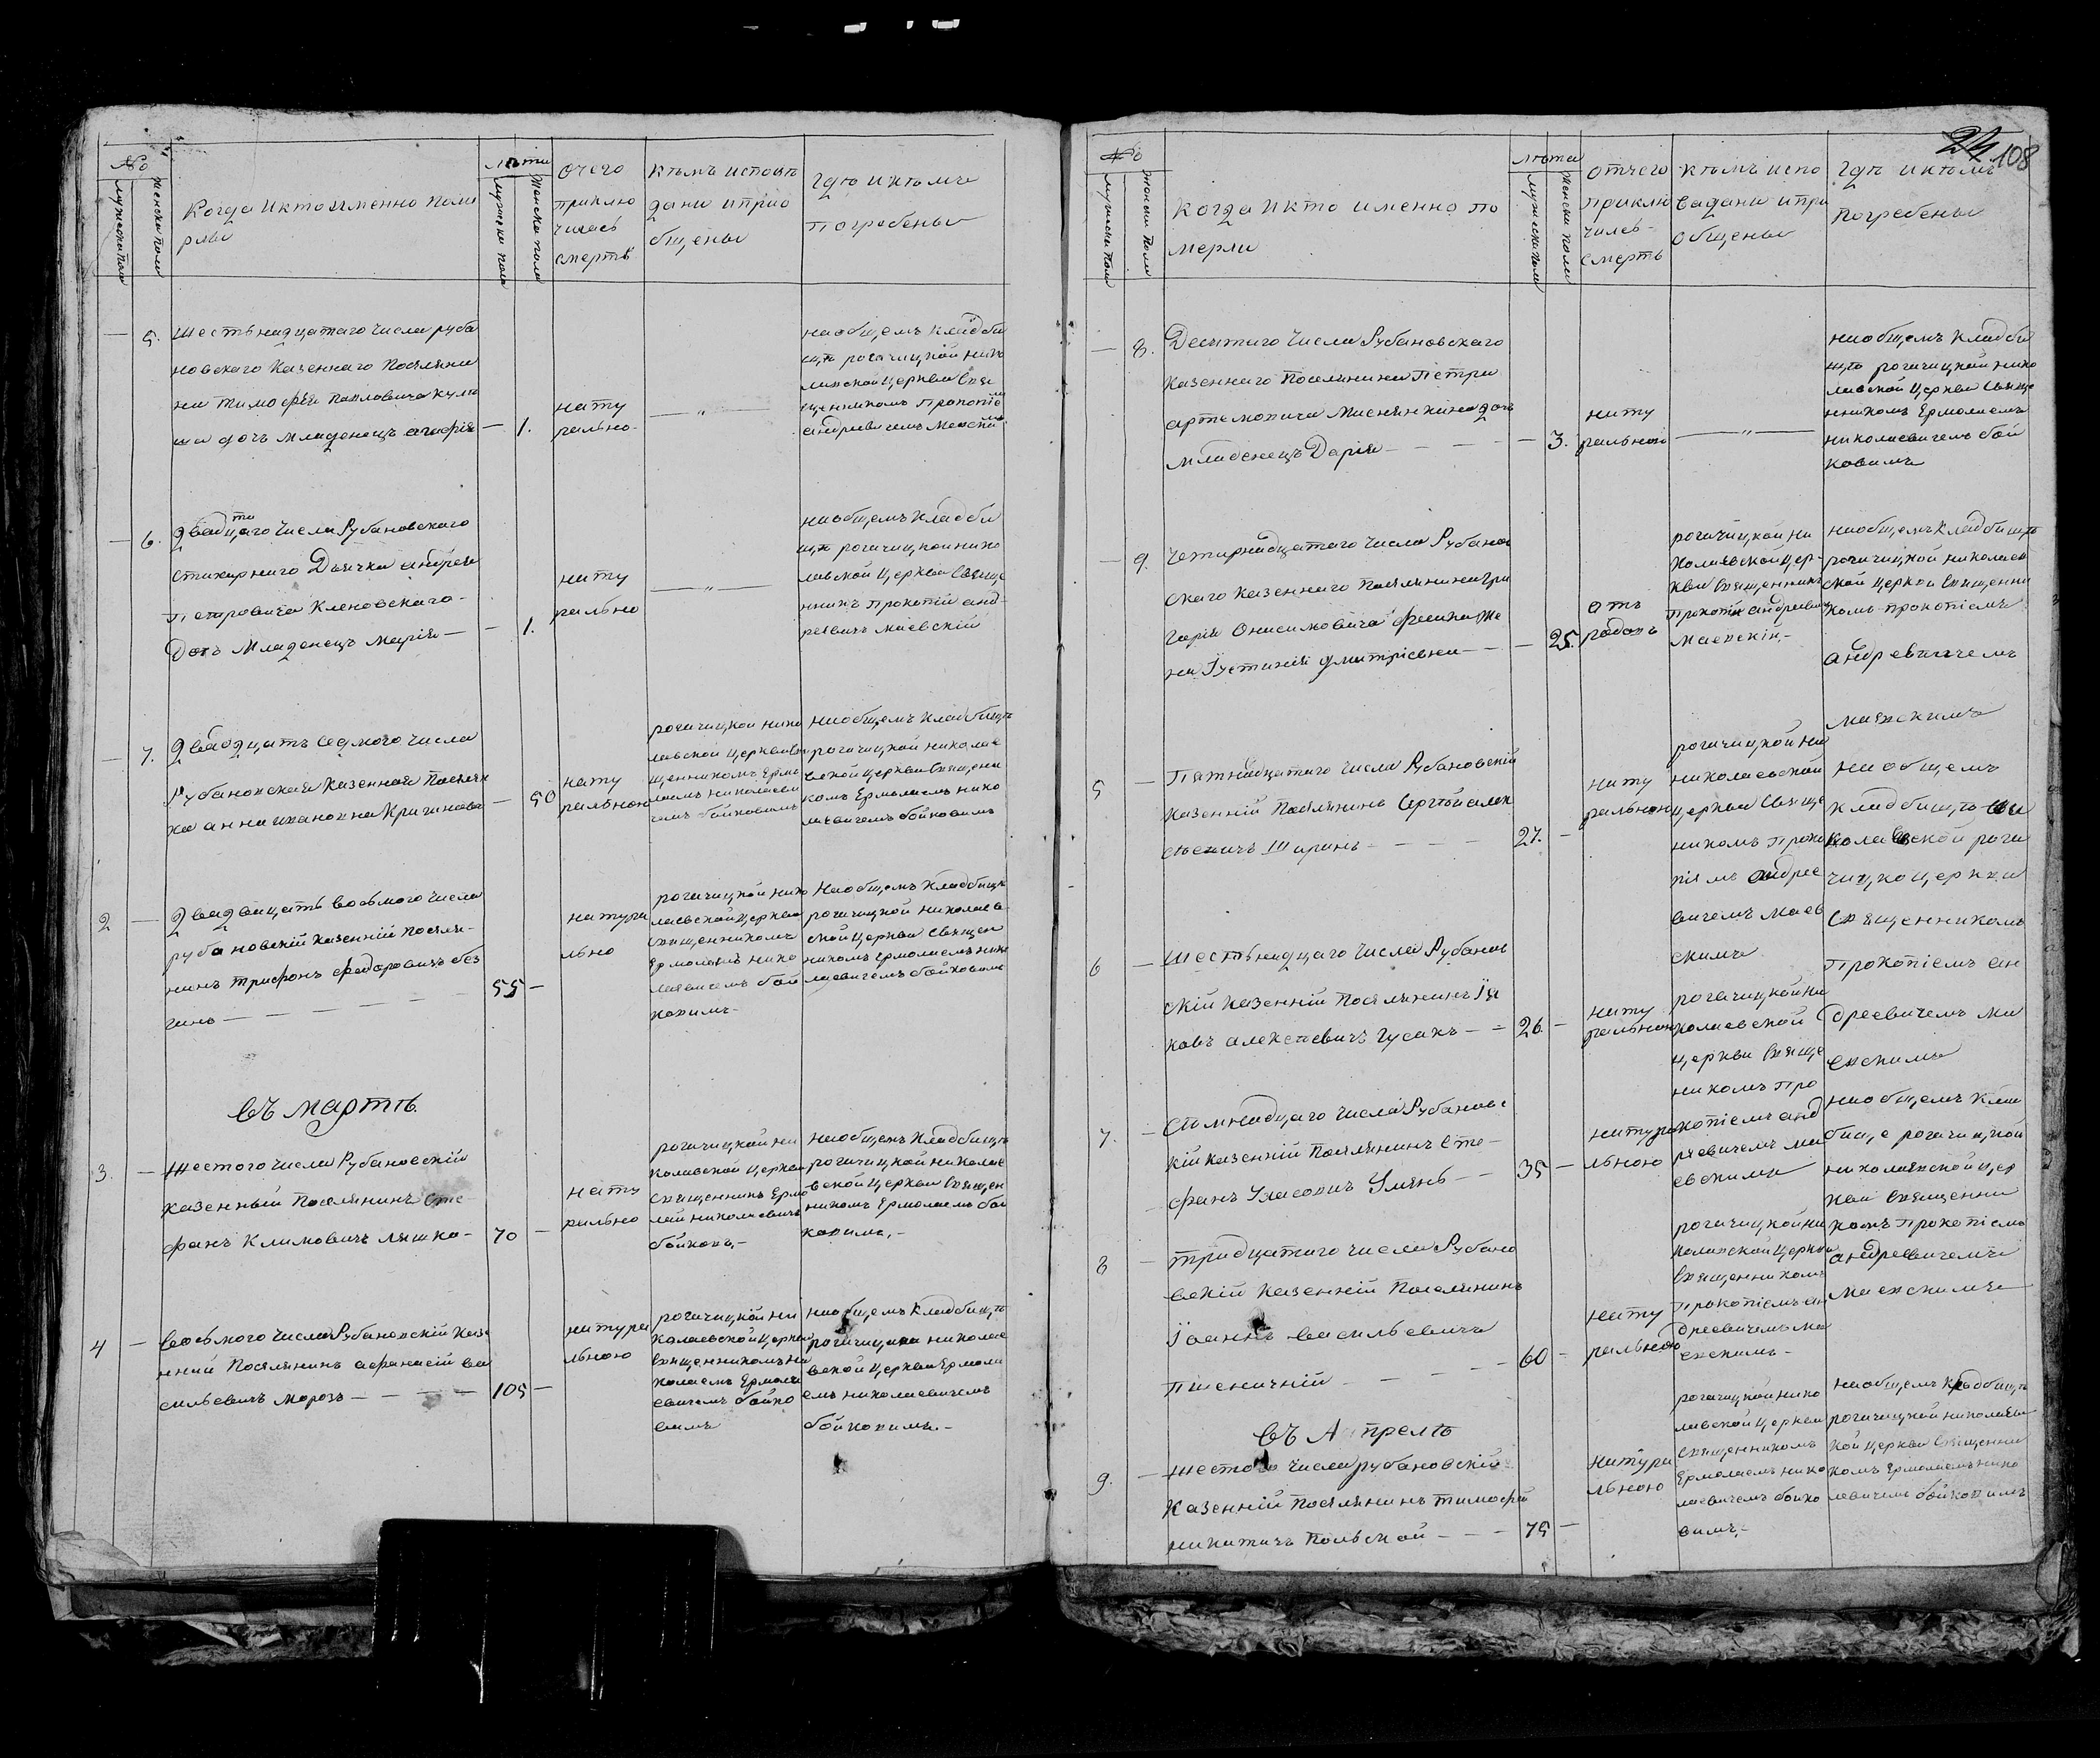 №
мужеска пола
женска пола
Когда и кто именно поме
рли
лѣта
мужеска пола
женска пола
очего
приклю
чилась
смерть
кѣмъ исповѣ
даны и прио
бщены
гдѣ и кѣмъ
погребены
— 5. Шестьнадцатаго числа руба
новскаго казеннаго поселяни
на тимофея павловича
дочь младенецъ агафiя — 1.
нату
рально
— „ —
на общемъ кладби
щѣ рогачицкой нико
лаевской церкви свя
щенникомъ прокопiе
андреевичемъ
— 6. Двадцатаго числа Рубановскаго
стихарнаго Дьячка андрея
Петровича Кленовскаго
Дочь Младенецъ Марiя — — 1.
нату
рально
— „ —
на общемъ кладби
щѣ рогачицкой нико
лавской церкви свяще
нникъ прокопiй анд
реевичь маевскiй
— 7. Двадцать седмого числа
Рубановская казенная поселян
ка анна ивановна Кришнова — 50
нату
ральною
рогачицкой нико
лавской церкви свя
щенникомъ ермо
лаемъ николаеви
чемъ бойковимъ
на общемъ кладбищѣ
рогачицкой николае
вской церкви священи
комъ ермолаемъ нико
лаевичемъ бойковимъ
2 — Двадвацать восьмого числа
рубановскiй казеннiй поселя
нинъ трифонъ федоровичъ без
— — — — 55 —
натура
льно
рогачицкой нико
лаевской церкви
священникомъ
ермолаемъ нико
лаевичемъ бой
ковимъ
на общемъ кладбищѣ
рогачицкой николаев
ской церкви священ
никомъ ермолаемъ нико
лаевичемъ бойковимъ
въ мартѣ.
3. — шестого числа Рубановскiй
казенный поселянинъ Сте
фанъ Климовичъ ляшко — 70 —
нату
рально
рогачицкой ни
колавской церкви
священникъ ермо
лай николаевичъ
бойковъ. —
на общемъ кладбищѣ
рогачицкой николае
вской церкви священ
никомъ ермолаемъ бой
ковимъ. —
4 — Восьмого числа Рубановскiй казе
ннiй поселянинъ афанасiй ва
сильевичъ морозъ — — — — 105 —
натура
льною
рогачицкой ни
колаевской церкви
священникомъ ни
колаемъ ермола
евичемъ бойко
вимъ
на общемъ кладбищѣ
рогачицкая николае
вской церкви ермола
емъ николаевичемъ
бойковимъ. —
24 108
№
мужеска пола
женска пола
Когда и кто именно по
мерли
лѣта
мужеска пола
женска пола
отчего
приклю
чилась
смерть
кѣмъ испо
веданы и при
общены
гдѣ и кѣмъ
погребены
— 8. Десятаго числа Рубановскаго
казеннаго поселянина петра
артемовича дочь
младенецъ Дарiя — — — — 3.
нату
ральною
— „ —
на общемъ кладби
щѣ рогачицкой нико
лавской церкви свяще
нникомъ ермолаемъ
николаевичемъ бой
ковимъ
— 9. Четирнадцатаго числа Рубанов
скаго казеннаго поселянина гри
горiя Онисимовича фесика же
на Їустинiя дмитрiевна — — 25.
отъ
родовъ
рогачицкой ни
колаевской цер
кви священникъ
прокопiй андреевич
маевскiй. —
на общемъ кладбищѣ
рогачицкой николаев
ской церкви священни
комъ прокопiемъ
андревичемъ
маевскимъ
5 — Пятнадцатаго числа Рубановскiй
казеннiй поселянинъ Сергѣй алек
сѣевичъ Ширинъ — — — — 27. —
нату
ральною
рогачицкой ни
николаевской
церкви свяще
никомъ проко
пiемъ андрее
вичемъ маев
скимъ
на общемъ
кладбищѣ ни
колаевской рога
чицко церкви
священникомъ
прокопiемъ ан
дреевичемъ ма
евскимъ
6 — Шестьнадцаго числа Рубанов
скiй казеннiй поселянинъ Їя
ковъ алексѣевичъ гусакъ — — 26. —
нату
ральною
рогачицкой ни
колаевской
церкви свяще
никомъ про
копiемъ анд
реевичемъ ма
евскимъ
на общемъ кла
бище рогачицкой
николаевской цер
кви священни
комъ прокопiемъ
андреевичемъ
маевскимъ
7. — Семнадцаго числа Рубановс
кiй казеннiй поселянинъ Сте
фанъ Уласовичъ Улянъ — — 35 —
натура
льною
рогачицкой ни
колавской церкви
священникомъ
прокопiемъ ан
дреевичемъ ма
евскимъ —
8 — тридцатаго числа Рубано
вскiй казеннiй поселянинъ
Їоаннъ васильевичъ
пшеничнiй — — — — 60 —
нату
ральною
въ Апрелѣ
9. — шестого числа рубановскiй
казеннiй поселянинъ тимофей
никитичъ польской — — — 75 —
натура
льною
рогачицкой нико
лавской церкви
священникомъ
ермолаемъ нико
лаевичемъ бойко
вимъ. —
на общемъ кладбищѣ
рогачицкой николаевс
кой церкви священни
комъ ермолаемъ нико
лаевичемъ бойковимъ